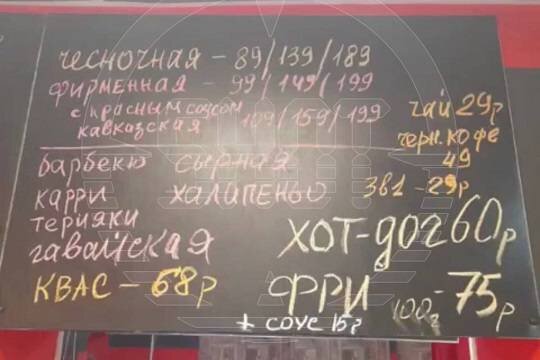 чесночная - 89/139/189
фирменная - 99/149/199
с красным соусом
кавказская 109/159/199
чай 29р
черн.кофе
49
3в1 - 29р
барбекю сырная
карри халапеньо
терияки
гавайская
хот-дог 60р
квас - 68р
фри 100г - 75р
+ соус 15р